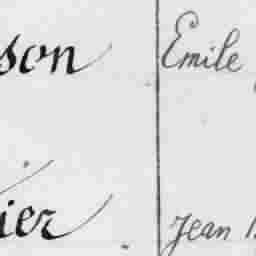 son Emile
ier Jean